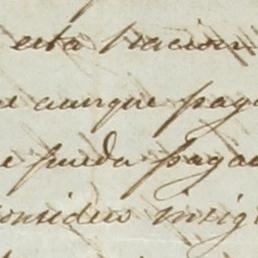 esta Nacion
e aunque pag
e pueda pagar
considero insig